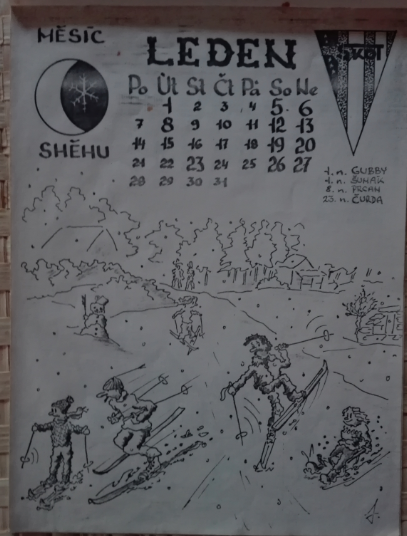 MĚSÍC
SHĚHU
LEDEN
Po Út St Čt Pá So Ne
1 2 3 4 5 6
7 8 9 10 11 12 13
14 15 16 17 18 19 20
21 22 23 24 25 26 27
28 29 30 31
1. n. GUBBY
1. n. ŠUNÁK
8. n. PRCAN
23. n. ČURDA